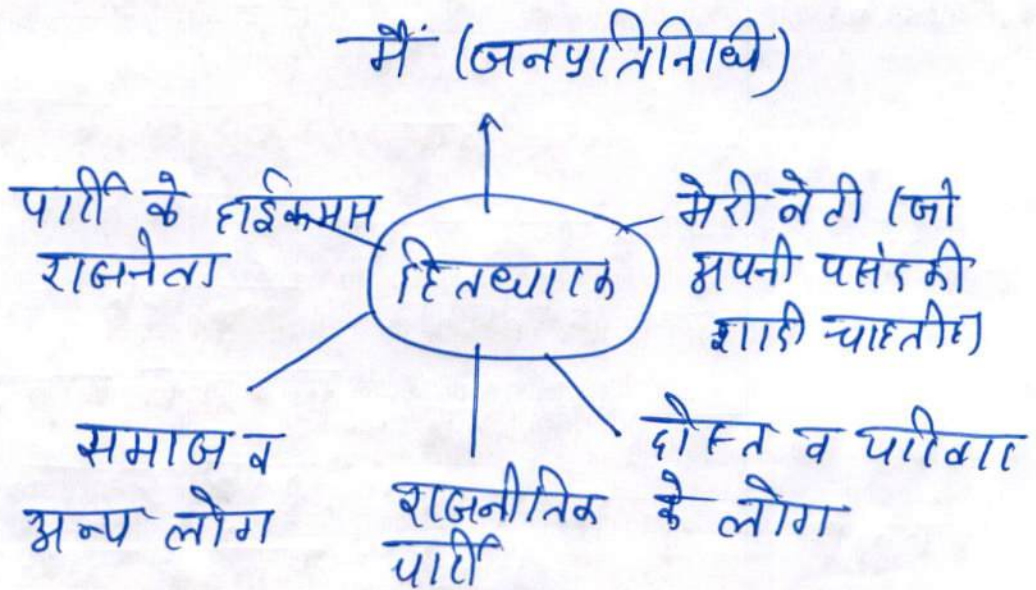 मैं (जनप्रतिनिधी)
पार्टी के हाईकमान
राजनेता
हितधारक
मेरी बेटी (जो
अपनी पसंद की
शादी चाहती है)
समाज व
अन्य लोग
राजनीतिक
पार्टी
दोस्त व परिवार
के लोग